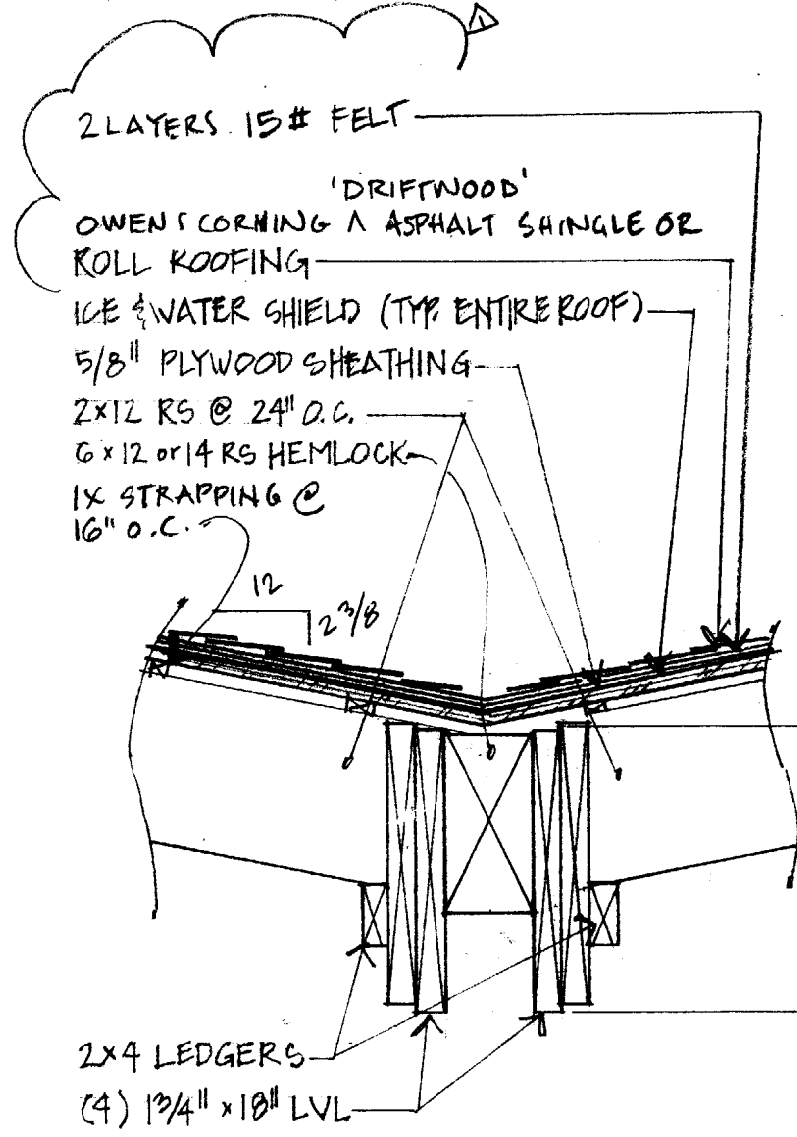 1
2 LAYERS 15# FELT
'DRIFTWOOD'
OWENS CORNING ^ ASPHALT SHINGLE OR
ROLL ROOFING
ICE & WATER SHIELD (TYP. ENTIRE ROOF)
5/8" PLYWOOD SHEATHING
2x12 RS @ 24" O.C.
6 x 12 or 14 RS HEMLOCK
1X STRAPPING @
16" O.C.
12
2 3/8
2x4 LEDGERS
(4) 1 3/4" x 18" LVL